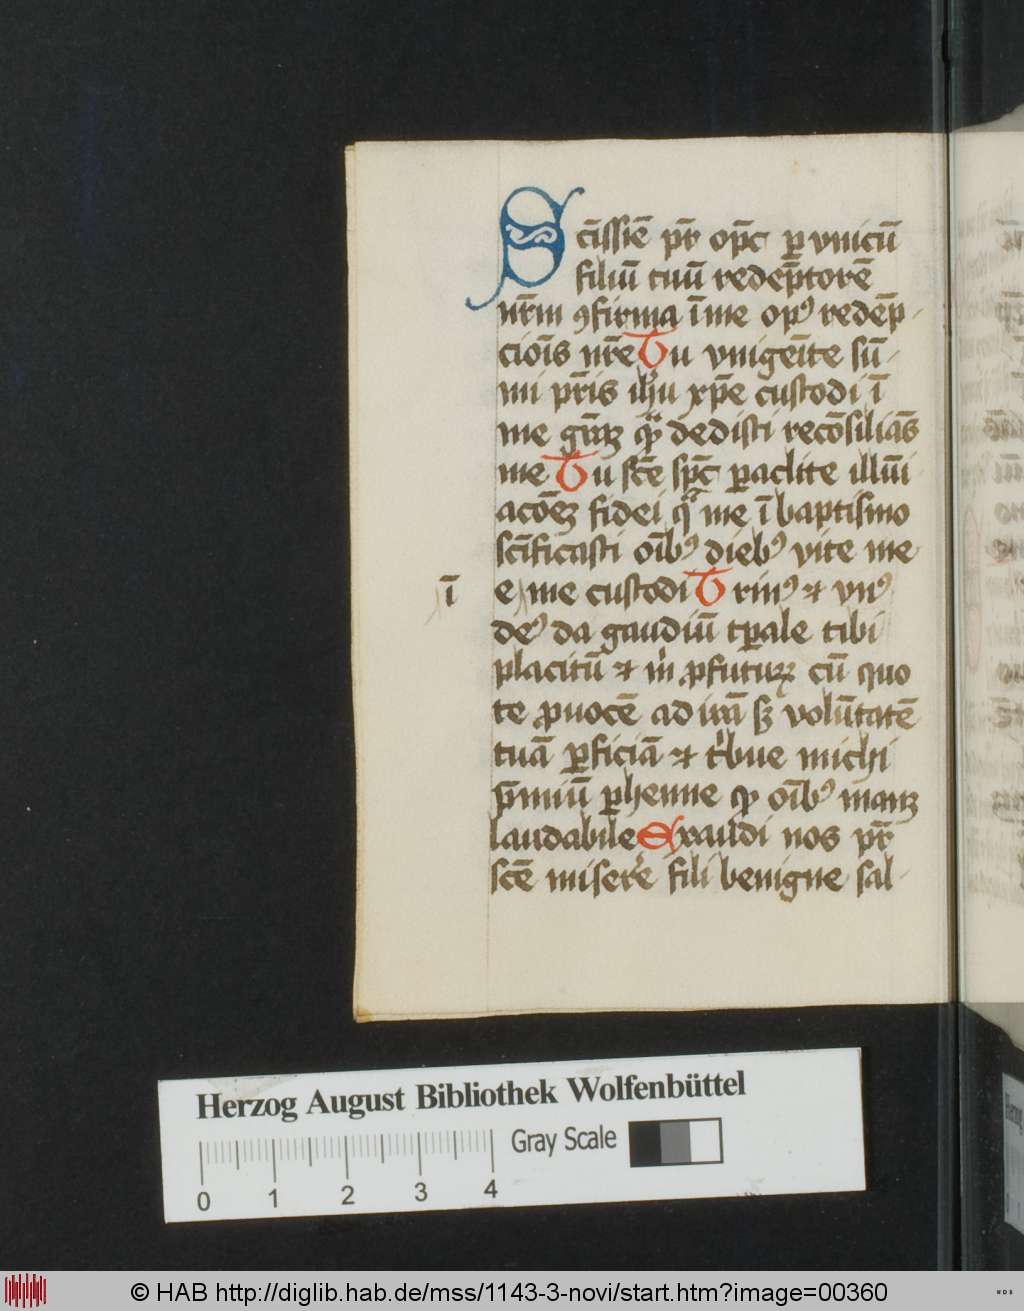 Sc̄issie̅ pr̅ op̅c ꝑ vnicū
filiū tuū redēptorē
nr̄m ꝯfirma ī me opꝰ redēp
cioīs nr̄e Tu vnigeīte sū
mi pr̄is ihu̅ xp̄e custodi ī
me gr̄aꝫ qᷓ dedisti recōsiliās
me Tu sc̄e sp̄c ꝑaclite illūi
acōeꝫ fidei qᷓ me ī baptismo
sc̄ificasti oīb⁹ dieb⁹ vite me
ī e me custodi Trin⁹ ⁊ vn⁹
de⁹ da gaudiū tꝑale tibi
placitū ⁊ m̍ ꝓfuturꝝ cū quo
te ꝓuocē ad irā sꝫ volūtatē
tuā ꝑficiā ⁊ tͥbue michi
p̄miū ꝑhenne ꝙ oīb⁹ maꝫ
laudabile Exaudi nos pr̄
sc̄e miserē fili benigne sal
Herzog August Bibliothek Wolfenbüttel
Gray Scale
0 1 2 3 4
© HAB http://diglib.hab.de/mss/1143-3-novi/start.htm?image=00360